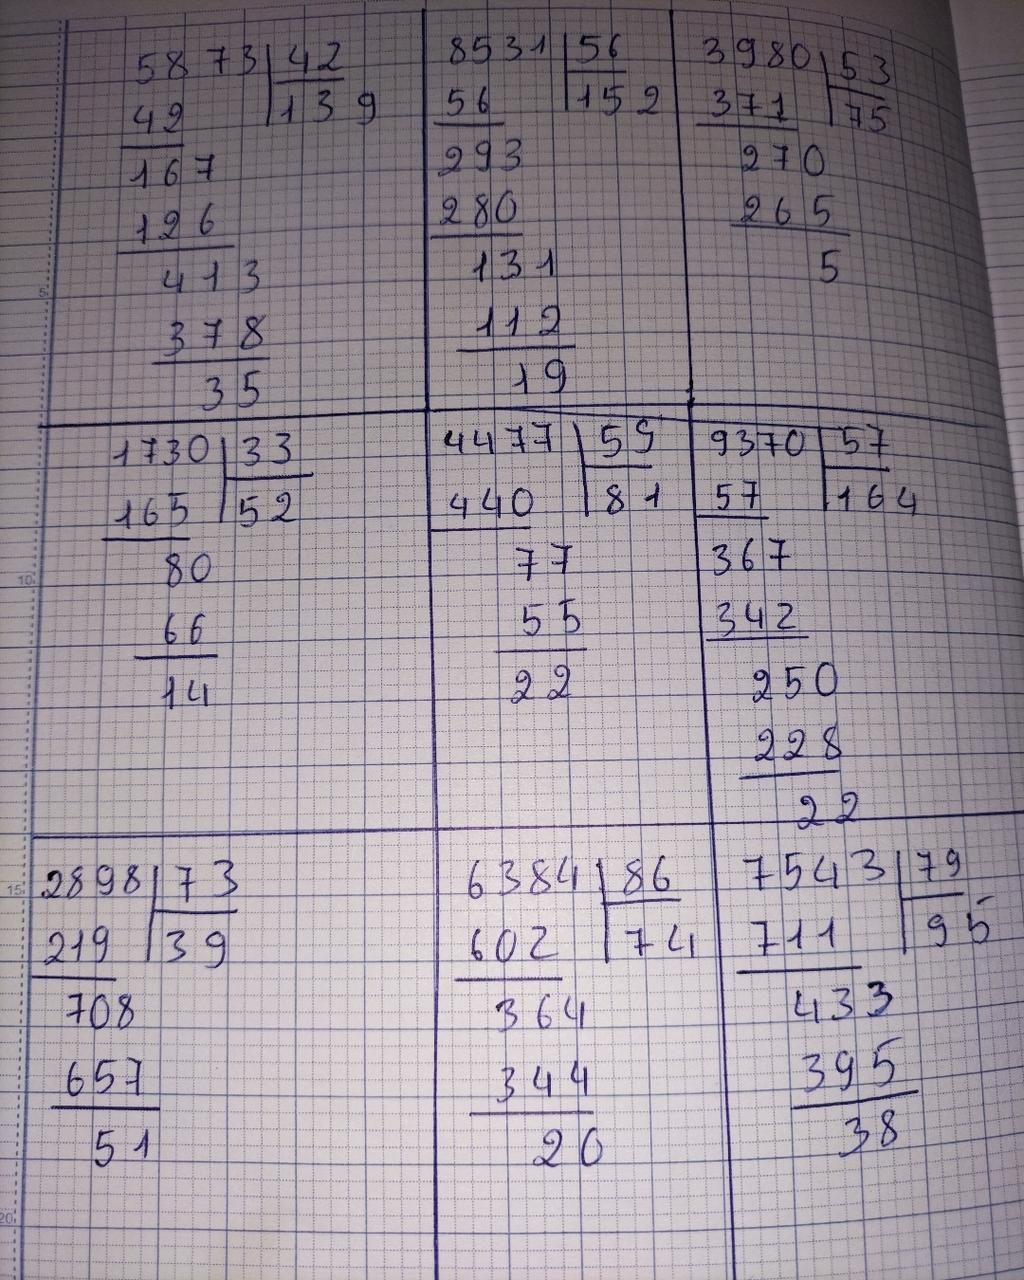 5873 42
42 139
167
126
413
378
35
8531 56
56 152
293
280
131
112
19
3980 53
371 75
270
265
5
1730 33
165 52
80
66
14
4477 55
440 81
77
55
22
9370 57
57 164
367
342
250
228
22
2898 73
219 39
708
657
51
6384 86
602 74
364
344
20
7543 79
711 95
433
395
38
5
10
15
20